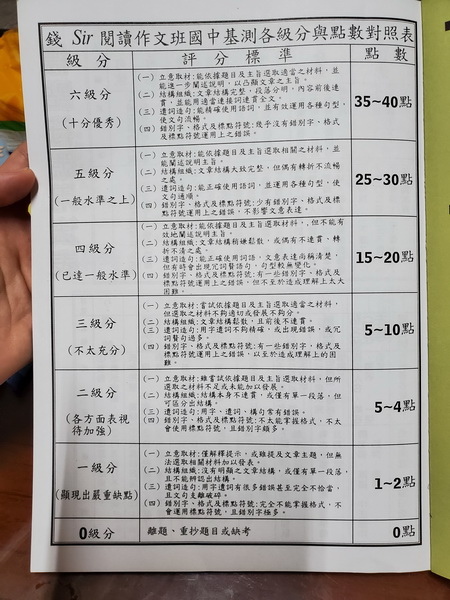 錢 Sir 閱讀作文班國中基測各級分與點數對照表
級分
評分標準
點數
六級分
(十分優秀)
(一) 立意取材:能依據題目及主旨選取適當之材料,並
能進一步闡述說明,以凸顯文章之主旨。
(二) 結構組織:文章結構完整,段落分明,內容前後連
貫,並能用適當連接詞連貫全文。
(三) 遣詞造句:能精確使用語詞,並有效運用各種句型,
使文句流暢。
(四) 錯別字、格式及標點符號:幾乎沒有錯別字、格式
及標點符號運用上之錯誤。
35~40點
五級分
(一般水準之上)
(一) 立意取材:能依據題目及主旨選取相關之材料,並
能闡述說明主旨。
(二) 結構組織:文章結構大致完整,但偶有轉折不流暢
之處。
(三) 遣詞造句:能正確使用語詞,並運用各種句型,使
文句通順。
(四) 錯別字、格式及標點符號:少有錯別字、格式及標
點符號運用上之錯誤,不影響文意表達。
25~30點
四級分
(已達一般水準)
(一) 立意取材:能依據題目及主旨選取材料,但不能有
效地闡述說明主旨。
(二) 結構組織:文章結構稍嫌鬆散,或偶有不連貫、轉
折不清之處。
(三) 遣詞造句:能正確使用詞語,文意表達尚稱清楚,
但有時會出現冗贅語句,句型較無變化。
(四) 錯別字、格式及標點符號:有一些錯別字、格式及
標點符號運用上之錯誤,但不至於造成理解上太大
困難。
15~20點
三級分
(不太充分)
(一) 立意取材:嘗試依據題目及主旨選取適當之材料,
但選取之材料不夠適切或發展不夠分。
(二) 結構組織:文章結構鬆散,且前後不連貫。
(三) 遣詞造句:用字遣詞不夠精確,或出現錯誤,或冗
詞贅句過多。
(四) 錯別字、格式及標點符號:有一些錯別字、格式及
標點符號運用上之錯誤,以至於造成理解上的困
難。
5~10點
二級分
(各方面表視
待加強)
(一) 立意取材:雖嘗試依據題目及主旨選取材料,但所
選取之材料不足或未能加以發展。
(二) 結構組織:結構本身不連貫,或僅有單一段落,但
可區分出結構。
(三) 遣詞造句:用字、遣詞、構句常有錯誤。
(四) 錯別字、格式及標點符號:不太能掌握格式,不太
會使用標點符號,且錯別字頗多。
5~4點
一級分
(顯現出嚴重缺點)
(一) 立意取材:僅解釋提示,或雖提及文章主題,但無
法選取相關材料加以發表。
(二) 結構組織:沒有明顯之文章結構,或僅有單一段落,
且不能辨認出結構。
(三) 遣詞造句:用字遣詞有很多錯誤甚至完全不恰當,
且文句支離破碎。
(四) 錯別字、格式及標點符號:完全不能掌握格式,不
會運用標點符號,且錯別字極多。
1~2點
0級分
離題、重抄題目或缺考
0點